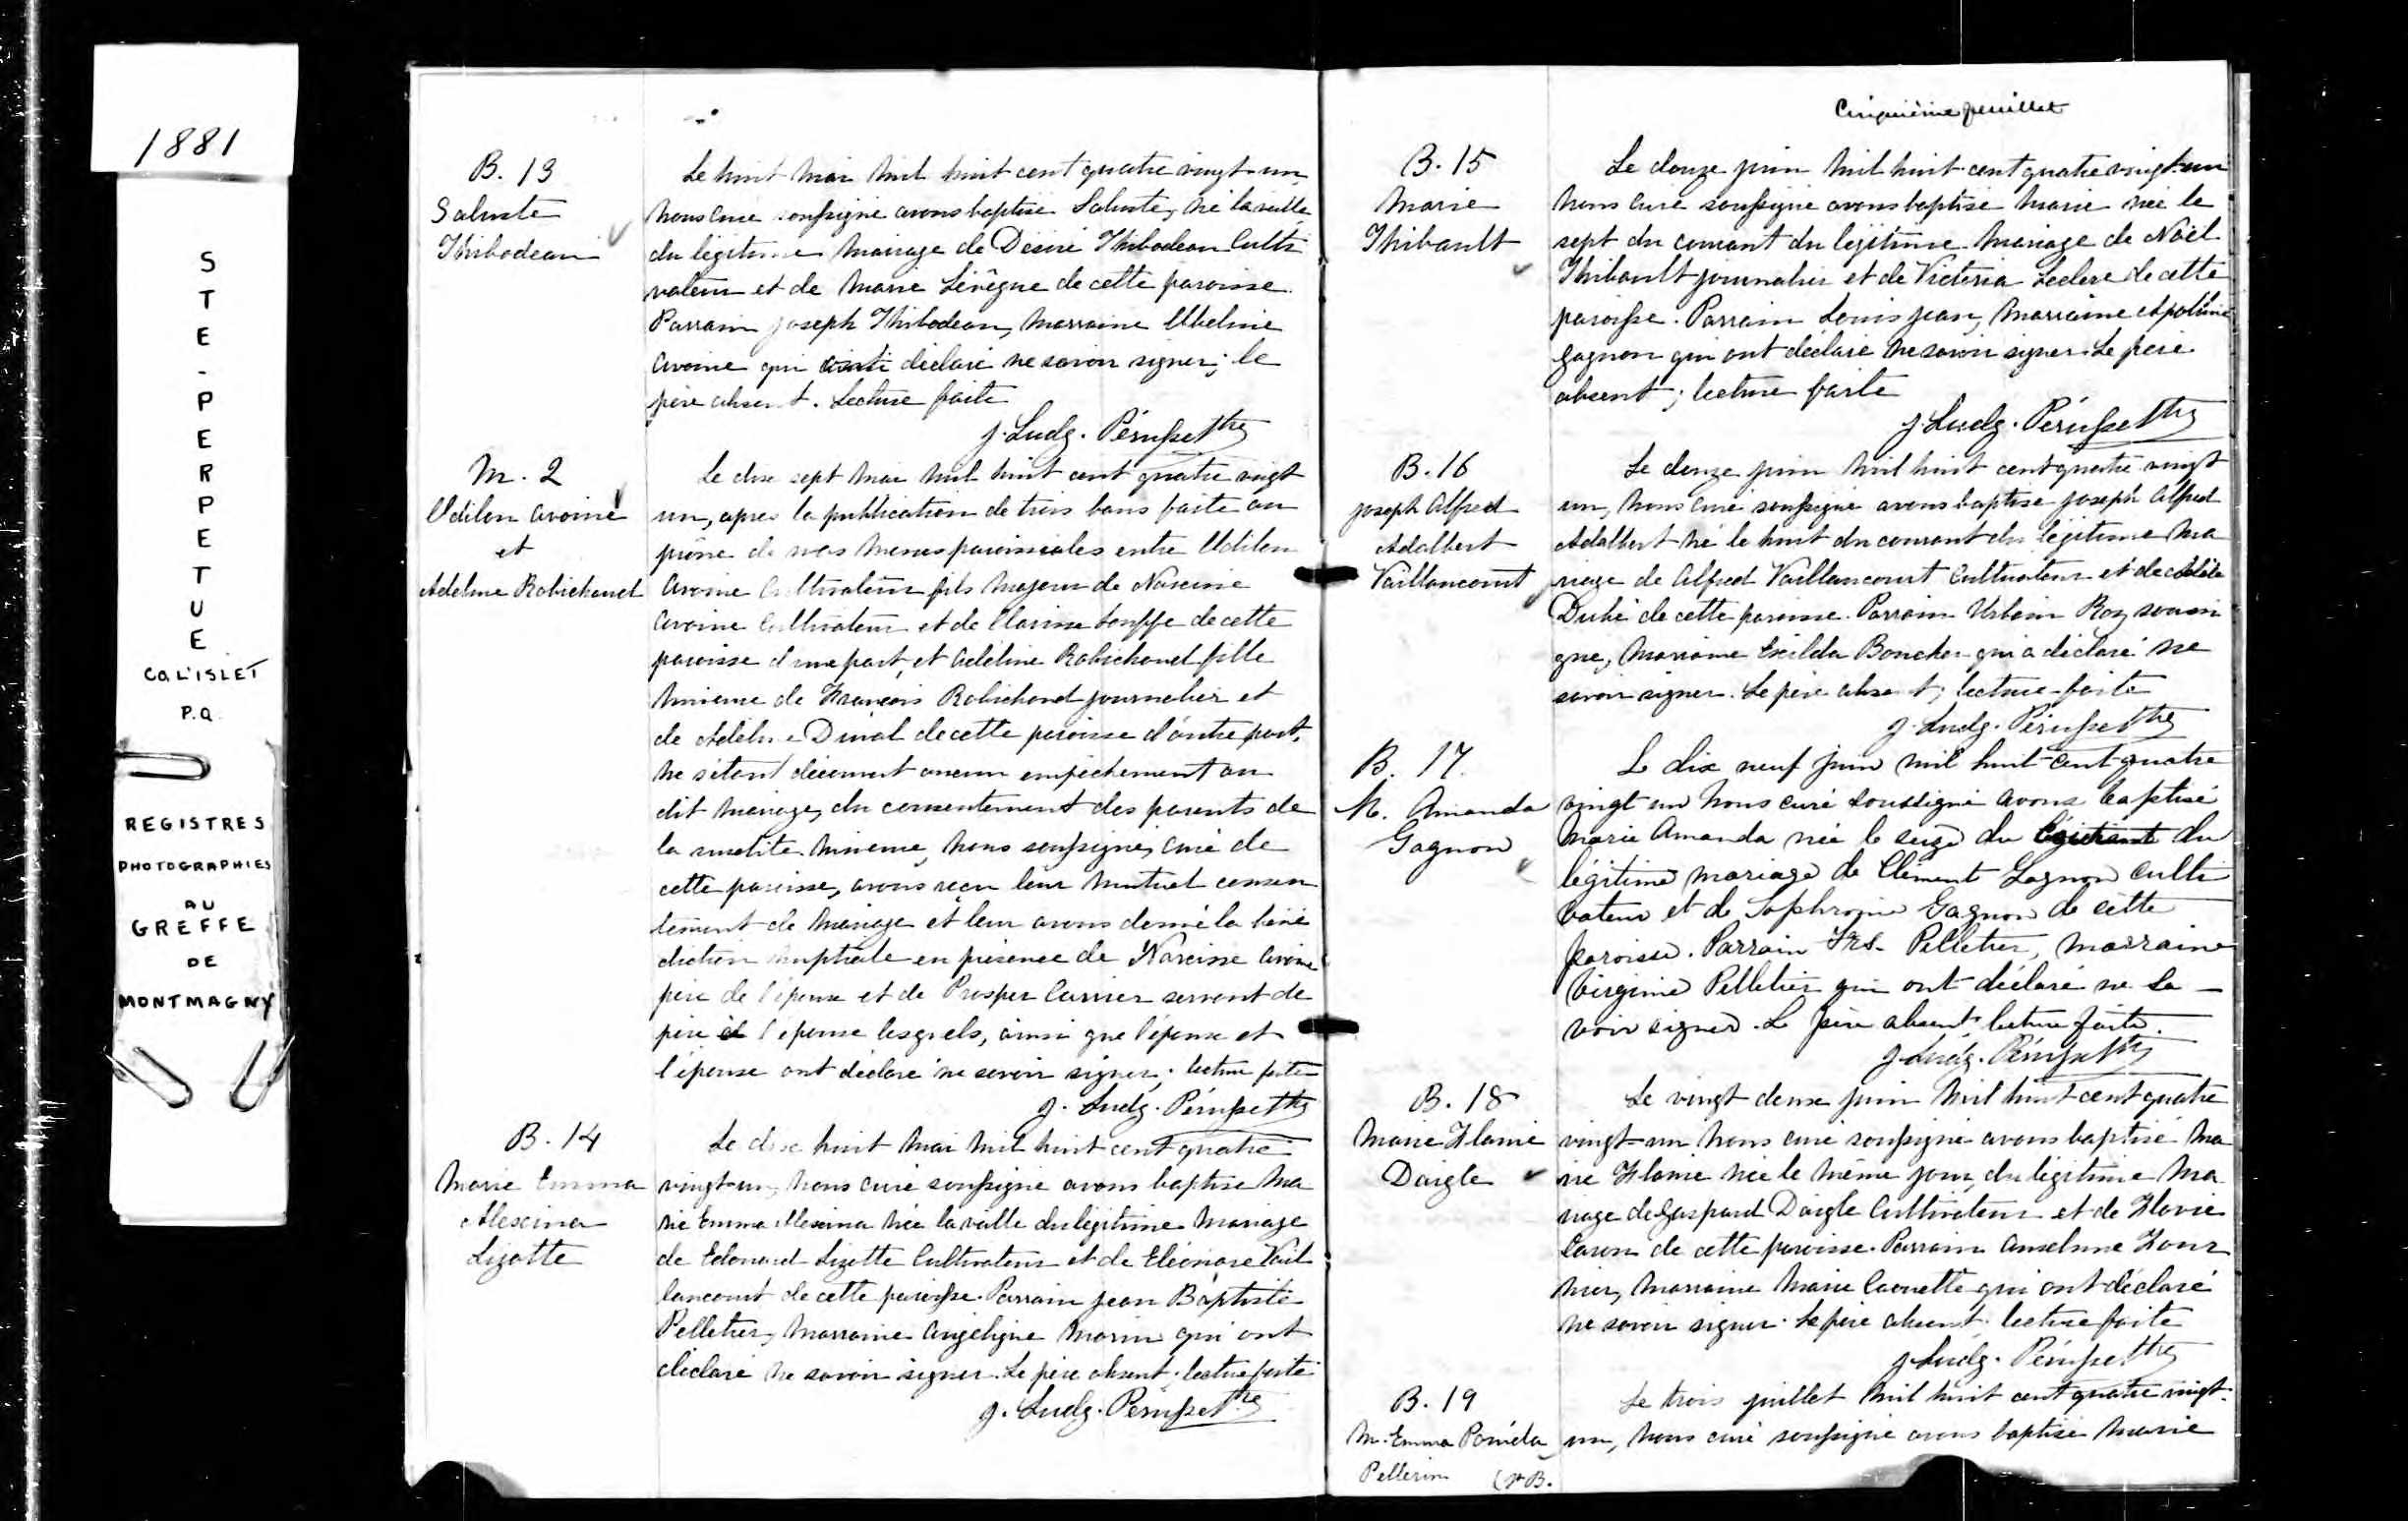 1881
STE-PERPETUE
CO. L'ISLET
P.Q.
REGISTRES
PHOTOGRAPHIES
AU
GREFFE
DE
MONTMAGNY
B. 13
Saluste
Thibodeau
Le huit mai mil huit cent quatre vingt-un
nous curé soussigné avons baptisé Saluste, né la veille
du légitime mariage de Désiré Thibodeau Culti
vateur et de Marie Lévêque de cette paroisse.
Parrain Joseph Thibodeau, marraine
Avoine qui déclaré ne savoir signer; le
père absent. Lecture faite
J. Ludg. Pérusse Ptre
M. 2
Odilon Avoine
et
Adeline Robichaud
Le dix sept mai mil huit cent quatre vingt
un, après la publication de trois bans faite au
prône de nos messes paroissiales entre Odilon
Avoine Cultivateur fils majeur de Narcisse
Avoine Cultivateur et de Clarisse de cette
paroisse d'une part, et Adéline Robichaud fille
mineure de François Robichaud journalier et
de Adeline de cette paroisse d'autre part,
ne s'étant découvert aucun empêchement au
dit mariage, du consentement des parents de
la susdite mineure, nous soussigné, curé de
cette paroisse, avons reçu leur mutuel consen
tement de mariage et leur avons donné la béné
diction nuptiale en présence de Narcisse Avoine
père de l'époux et de Prosper Carrier servant de
père à l'épouse lesquels, ainsi que l'époux et
l'épouse ont déclaré ne savoir signer. lecture faite
J. Ludg. Pérusse Ptre
B. 14
Marie Emma
Alexina
Lizotte
Le dix huit mai mil huit cent quatre
vingt-un, nous curé soussigné avons baptisé Ma
rie Emma Alexina née la veille du légitime mariage
de Edouard Lizotte Cultivateur et de Eléonore Vail
lancourt de cette paroisse. Parrain Jean Baptiste
Pelletier, marraine Angélique Morin qui ont
déclaré ne savoir signer. Le père absent. lecture faite
J. Ludg. Pérusse Ptre
Cinquième feuillet
B. 15
Marie
Thibault
Le douze juin mil huit cent quatre vingt-un
nous curé soussigné avons baptisé Marie née le
sept du courant du légitime mariage de Noël
Thibault journalier et de Victoria Leclerc de cette
paroisse. Parrain Louis Jean, marraine Apolline
Gagnon qui ont déclaré ne savoir signer. Le père
absent; lecture faite
J. Ludg. Pérusse Ptre
B. 16
Joseph Alfred
Adalbert
Vaillancourt
Le douze juin mil huit cent quatre vingt
un, nous curé soussigné avons baptisé Joseph Alfred
Adalbert né le huit du courant du légitime ma
riage de Alfred Vaillancourt Cultivateur et de
Dubé de cette paroisse. Parrain Urbain Roy soussi
gné, marraine Exilda Boucher qui a déclaré ne
savoir signer. Le père absent; lecture faite
J. Ludg. Pérusse Ptre
B. 17.
M. Amanda
Gagnon
Le dix neuf juin mil huit cent quatre
vingt un nous curé soussigné avons baptisé
Marie Amanda née le seize du courant du
légitime mariage de Clément Gagnon culti
vateur et de Sophronie Gagnon de cette
paroisse. Parrain Frs. Pelletier, marraine
Virginie Pelletier qui ont déclaré ne sa-
voir signer. Le père absent, lecture faite.
J. Ludg. Pérusse Ptre
B. 18
Marie Flavie
Daigle
Le vingt deux juin mil huit cent quatre
vingt-un nous curé soussigné avons baptisé Ma
rie Flavie née le même jour, du légitime ma
riage de Gaspard Daigle Cultivateur et de Flavie
Caron de cette paroisse. Parrain Anselme Four
nier, marraine Marie Caouette qui ont déclaré
ne savoir signer. Le père absent. lecture faite
J. Ludg. Pérusse Ptre
B. 19
M. Emma Poméla
Pellerin
Le trois juillet mil huit cent quatre vingt-
un, nous curé soussigné avons baptisé Marie